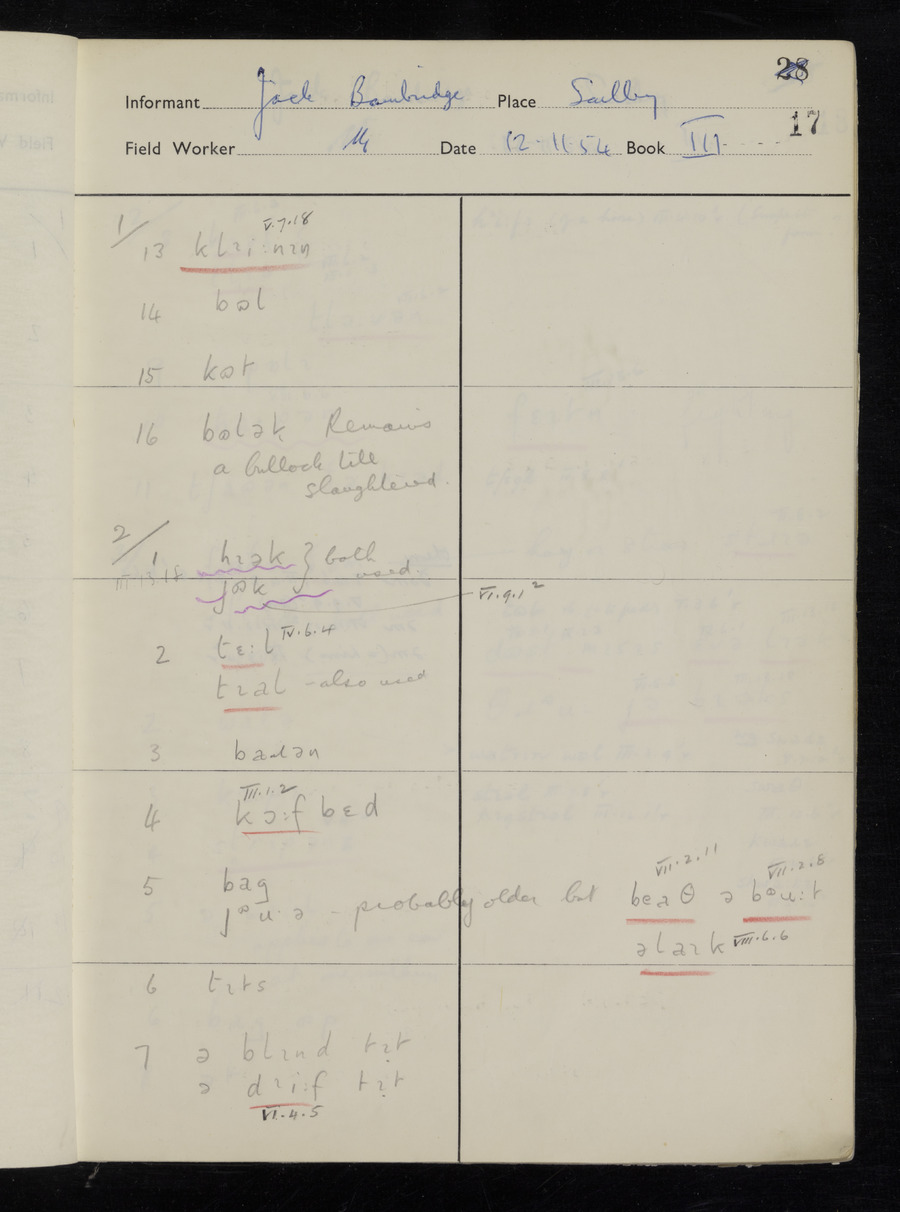 28
17
Informant Jack Bambridge Place Sailby
Field Worker Date 12·11·54 Book III
1/
V.7.18
13 klɪi:nɪn
14 bʊl
15 kʊt
16 bʊlək Remains
a bullock till
slaughtered.
2/
1 hɪək } both
III·13·18 jʊk used.
VI.9.1²
2 tɛ:l IV.6.4
tɪəl - also used
3 badən
III.1.2
4 kɔ:f bɛd
5 bag
jʊu:ə - probably older but beəθ ə bʊu:t
VII.2.11 VII.2.8
əlaɪk VIII.6.6
6 tɪts
7 ə blɪnd tɪt
ə dɪi:f tɪt
VI.4.5